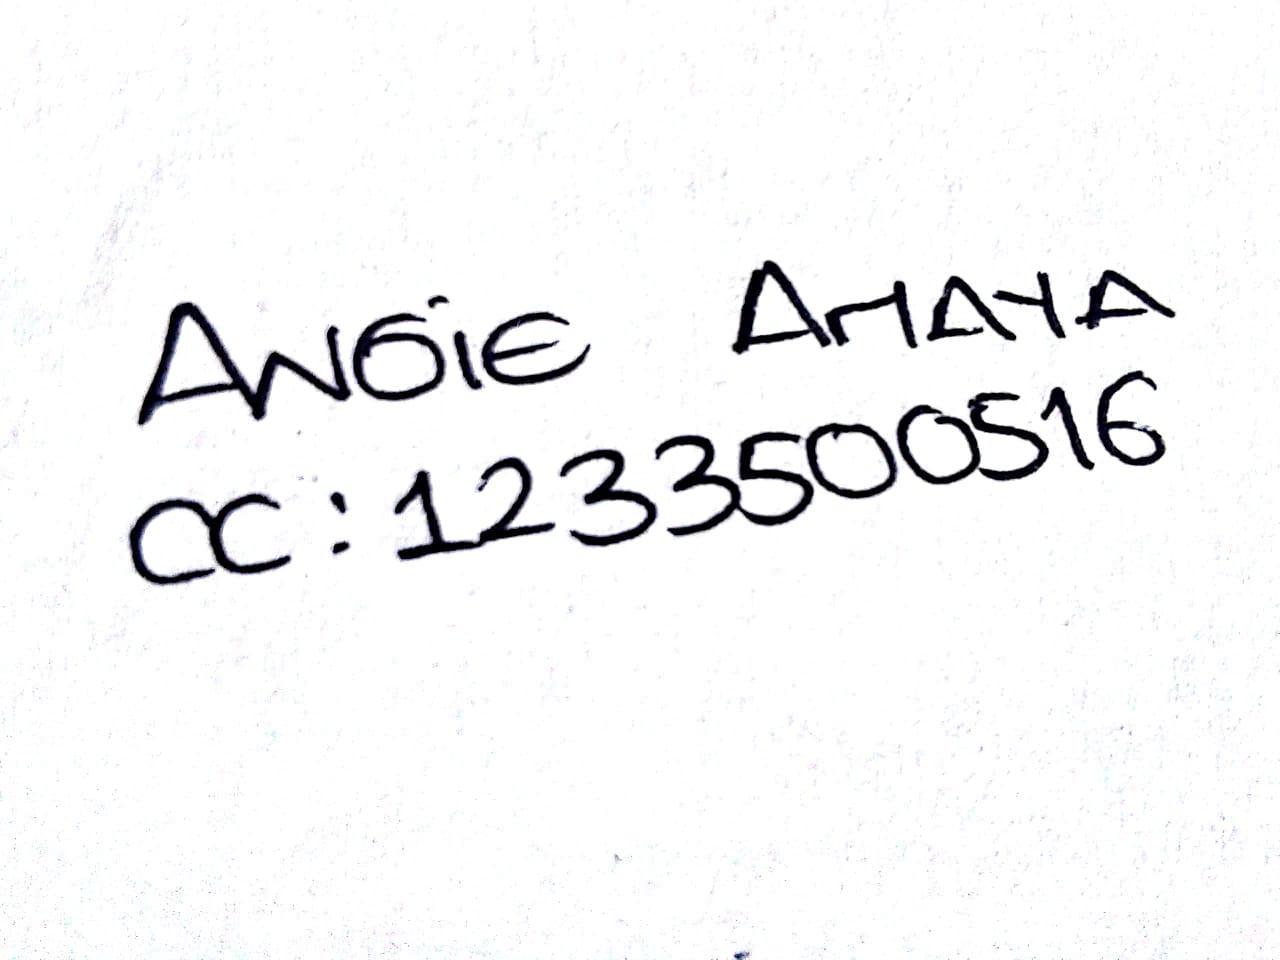 ANGiE AMAYA
CC: 1233500516